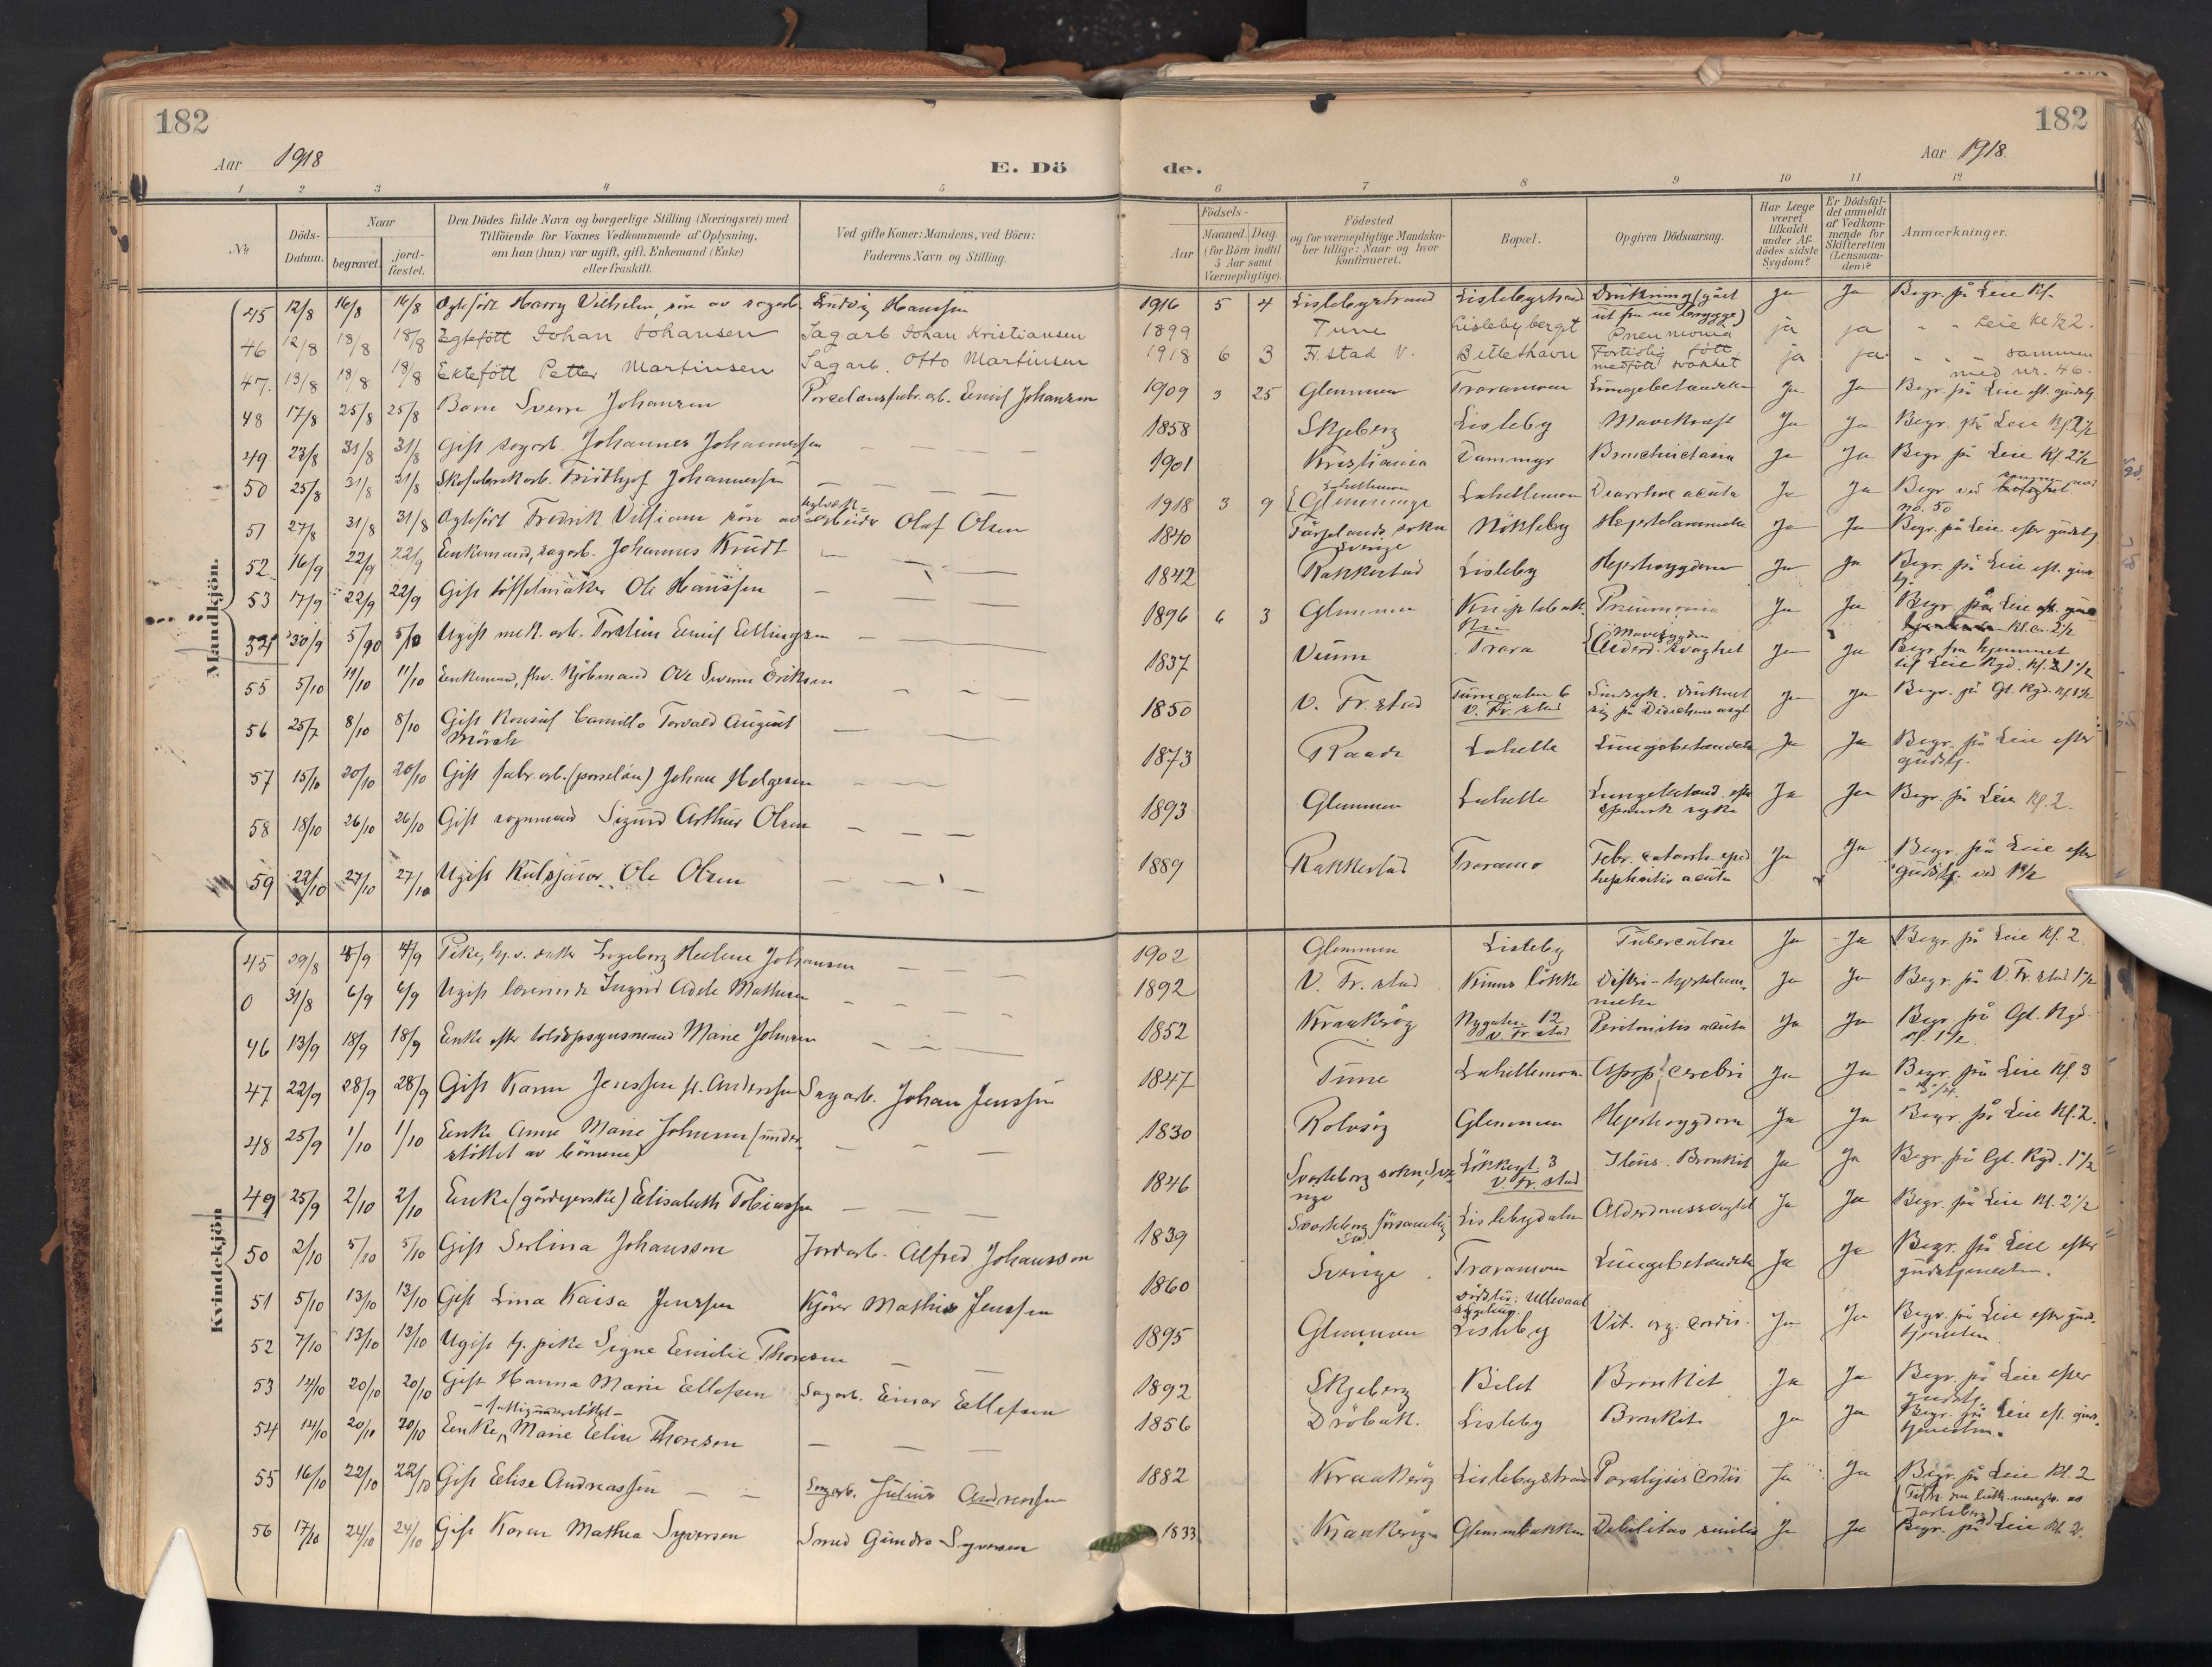 182
182
Aar 1918
E. Dö
de.
Aar 1918
1 2 3 4 5 6 7 8 9 10 11 12
No.
Döds-
Datum.
Naar
begravet.
jord-
fæstet.
Den Dödes fulde Navn og borgerlige Stilling (Næringsvei) med
Tilföiende for Voxnes Vedkommende af Oplysning,
om han (hun) var ugift, gift, Enkemand (Enke)
eller fraskilt.
Ved gifte Koner: Mandens, ved Börn:
Faderens Navn og Stilling.
Födsels-
Aar
Maaned. Dag.
(for Börn indtil
5 Aar samt
Værnepligtige).
Födested
og for værnepligtige Mandska-
ber tillige: Naar og hvor
konfirmeret.
Bopæl.
Opgiven Dödsaarsag.
Har Læge
været
tilkaldt
under Af-
dödes sidste
Sygdom?
Er Dödsfal-
det anmeldt
af Vedkom-
mende for
Skifteretten
(Lensman-
den)?
Anmærkninger.
Mandkjön.
45 12/8 16/8 16/8 Ægtefödt Harry Vilhelm, sön av sagarb. Ludvig Hanssen 1916 5 4 Lislebystrand Lislebystrand Drukning (gaat ut fra en brygge) Ja Ja Begr. på Leie Kl.
46 12/8 18/8 18/8 Egtefött Johan Johansen Sagarb Johan Kristiansen 1899 Tune Lislebyberget Pneumonia ja ja " " Leie Kl ½ 2.
47. 13/8 18/8 18/8 Ektefött Petter Martinsen Sagarb. Otto Martinsen 1918 6 3 Fr.stad V. Bittehavn Fortidlig fött medfött svakhet ja ja " " " sammen med nr. 46.
48 17/8 25/8 25/8 Barn Sverre Johansen Porcelansfabr. arb. Emil Johansen 1909 3 25 Glemmen Traramoen Lungebetændelse Ja Ja Begr. på Leie eft. gudstj.
49 23/8 31/8 31/8 Gift sagarb. Johannes Johannessen — — — 1858 Skjeberg Lisleby Mavekræft Ja Ja Begr. på Leie Kl 2½
50 25/8 31/8 31/8 Skofabrikarb. Fridthjof Johannessen — — — 1901 Kristiania Dammyr Bronchiectasia Ja Ja Begr. på Leie Kl. 2½
51 27/8 31/8 31/8 Ægtefödt Fredrik Villiam sön av arbeider Olaf Olsen 1918 3 9 Glemminge Lahellemoen Diarrhoe acuta Ja Ja Begr. ved sammen med no. 50
52 16/9 22/9 22/9 Enkemand, sagarb. Johannes Krudt — — — 1840 Färgelanda sokn Sverige Nökleby Hjertelammelse Ja Ja Begr. på Leie efter gudstj.
53 17/9 22/9 22/9 Gift töffelmaker Ole Hanssen — — — 1842 Rakkestad Lisleby Hjertesygdom Ja Ja Begr. på Leie eft. gudstj.
54 30/9 5/10 5/10 Ugift mek. arb. Torstein Emil Ellingsen — — — 1896 6 3 Glemmen Kniplebak. Pneumonia Ja Ja Begr. på Leie eft. Kl. ca. 2½
55 5/10 11/10 11/10 Enkemand, fhv. Kjöbmand Ove Svenn Eriksen — — — 1837 Trara Mavesygdom Alderd. svaghet Ja Ja Begr. fra hjemmet til Leie Kgd. Kl. 1½
56 25/7 8/10 8/10 Gift Konsul Camillo Torvald August Mörch — — — 1850 V. Fr.stad Turngaten 6 V. Fr.stad Sindsyk. Druknet sig på Dedichens asyl Ja Ja Begr. på Gl. Kgd. Kl 1½
57 15/10 20/10 20/10 Gift fabr. arb. (porselæn) Johan Helgesen — — — 1873 Raade Lahelle Lungebetændelse Ja Ja Begr. på Leie efter gudstj.
58 18/10 26/10 26/10 Gift vognmand Sigurd Arthur Olsen — — — 1893 Glemmen Lahelle Lungebetænd. efter spansk syke Ja Ja Begr. på Leie Kl. 2.
59 22/10 27/10 27/10 Ugift Kulsjauer Ole Olsen — — — 1889 Rakkestad Traramo Febr. catarrh. epid. nephritis acuta Ja Ja Begr. på Leie efter gudstj. ved 1½
Kvindekjön
45 29/8 4/9 4/9 Pike, hj.v. datter Ingeborg Helene Johansen — — 1902 Glemmen Lisleby Tuberculose Ja Ja Begr. på Leie Kl. 2.
0 31/8 6/9 6/9 Ugift lærerinde Ingrid Adele Mathisen — — — 1892 V. Fr. stad Kinns lökke Difteri-hjertelammelse Ja Ja Begr. på V. Fr. stad 1½
46 13/9 18/9 18/9 Enke efter toldopsynsmand Marie Johnsen — — — 1852 Kraakeröy Nygaten 12 V. Fr. stad Peritonitis acuta Ja Ja Begr. på Gl. Kgd. kl. 1½.
47 22/9 28/9 28/9 Gift Karen Jenssen f. Anderssen Sagarb. Johan Jenssen 1847 Tune Lahellemoen Apop. cerebri Ja Ja Begr. på Leie Kl. 3
48 25/9 1/10 1/10 Enke Anne Marie Johnsen (under- stöttet av börnene) — — — 1830 Rolvsöy Glemmen Hjertesygdom Ja Ja Begr. på Leie Kl. 2.
49 25/9 2/10 2/10 Enke (gårdejerske) Elisabeth Tobiassen 1846 Svarteborg sokn, Sve- rige Lökkegt. 3 V. Fr. stad Ileus. Bronkit Ja Ja Begr. på Gl. Kgd. 1½
50 2/10 5/10 5/10 Gift Serlina Johansson Jordarb. Alfred Johansson 1839 Svarteborg församling Sv. Lislebydalen Alderdomssvaghet Ja Ja Begr. på Leie Kl. 2½
51 5/10 13/10 13/10 Gift Lina Kaisa Jenssen Kjörer Mathis Jenssen 1860 Sverige Traramoen Lungebetændelse Ja Ja Begr. på Leie efter gudstjenesten.
52 7/10 13/10 13/10 Ugift tj. pike Signe Emilie Thoresen — — 1895 Glemmen dödsted: Ullevaal sykehus. Lisleby Vit. org. cordis. Ja Ja Begr. på Leie efter guds- tjenesten.
53 14/10 20/10 20/10 Gift Hanna Marie Ellefsen Sagarb. Einar Ellefsen 1892 Skjeberg Bilet Bronkit Ja Ja Begr. på Leie efter gudstj.
54 14/10 20/10 20/10 Enke, -fattigunderstöttet- Marie Eline Thoresen — — — 1856 Dröbak. Lisleby Bronkit Ja Ja Begr. på Leie eft. guds- tjenesten.
55 16/10 22/10 22/10 Gift Elise Andreassen — — Sagarb. Julius Andreassen 1882 Kraakeröy Lislebystrand Paralysis cordis Ja Ja Begr. på Leie Kl. 2
56 17/10 24/10 24/10 Gift Karen Mathea Syversen Smed Gundro Syversen 1833 Kraakeröy Glemmbakken Debilitas senilis Ja Ja Begr. på Leie Kl. 2.